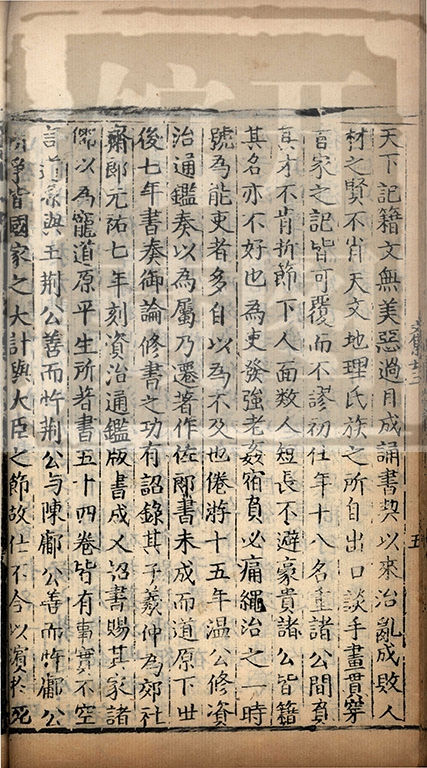 天下記籍文無美惡過目成誦書契以來治亂成敗人
材之賢不肖天文地理氏族之所自出口談手畫貫穿
百家之記皆可覆而不謬初仕年十八名重諸公間負
其才不肯折節下人面數人短長不避豪貴諸公皆籍
其名亦不好也為吏發強老姦宿負必痛繩治之一時
號為能吏者多自以為不及也倦游十五年温公修資
治通鑑奏以為屬乃遷著作佐郎書未成而道原下世
後七年書奏御論修書之功有詔錄其子羲仲為郊社
齋郎元祐七年刻資治通鑑版書成又詔書賜其家諸
儒以為寵道原平生所著書五十四卷皆有事實不空
言道原與王荆公善而忤荆公与陳鄘公善而忤鄘公
所爭皆國家之大計與大臣之節故仕不合以濱於死
五